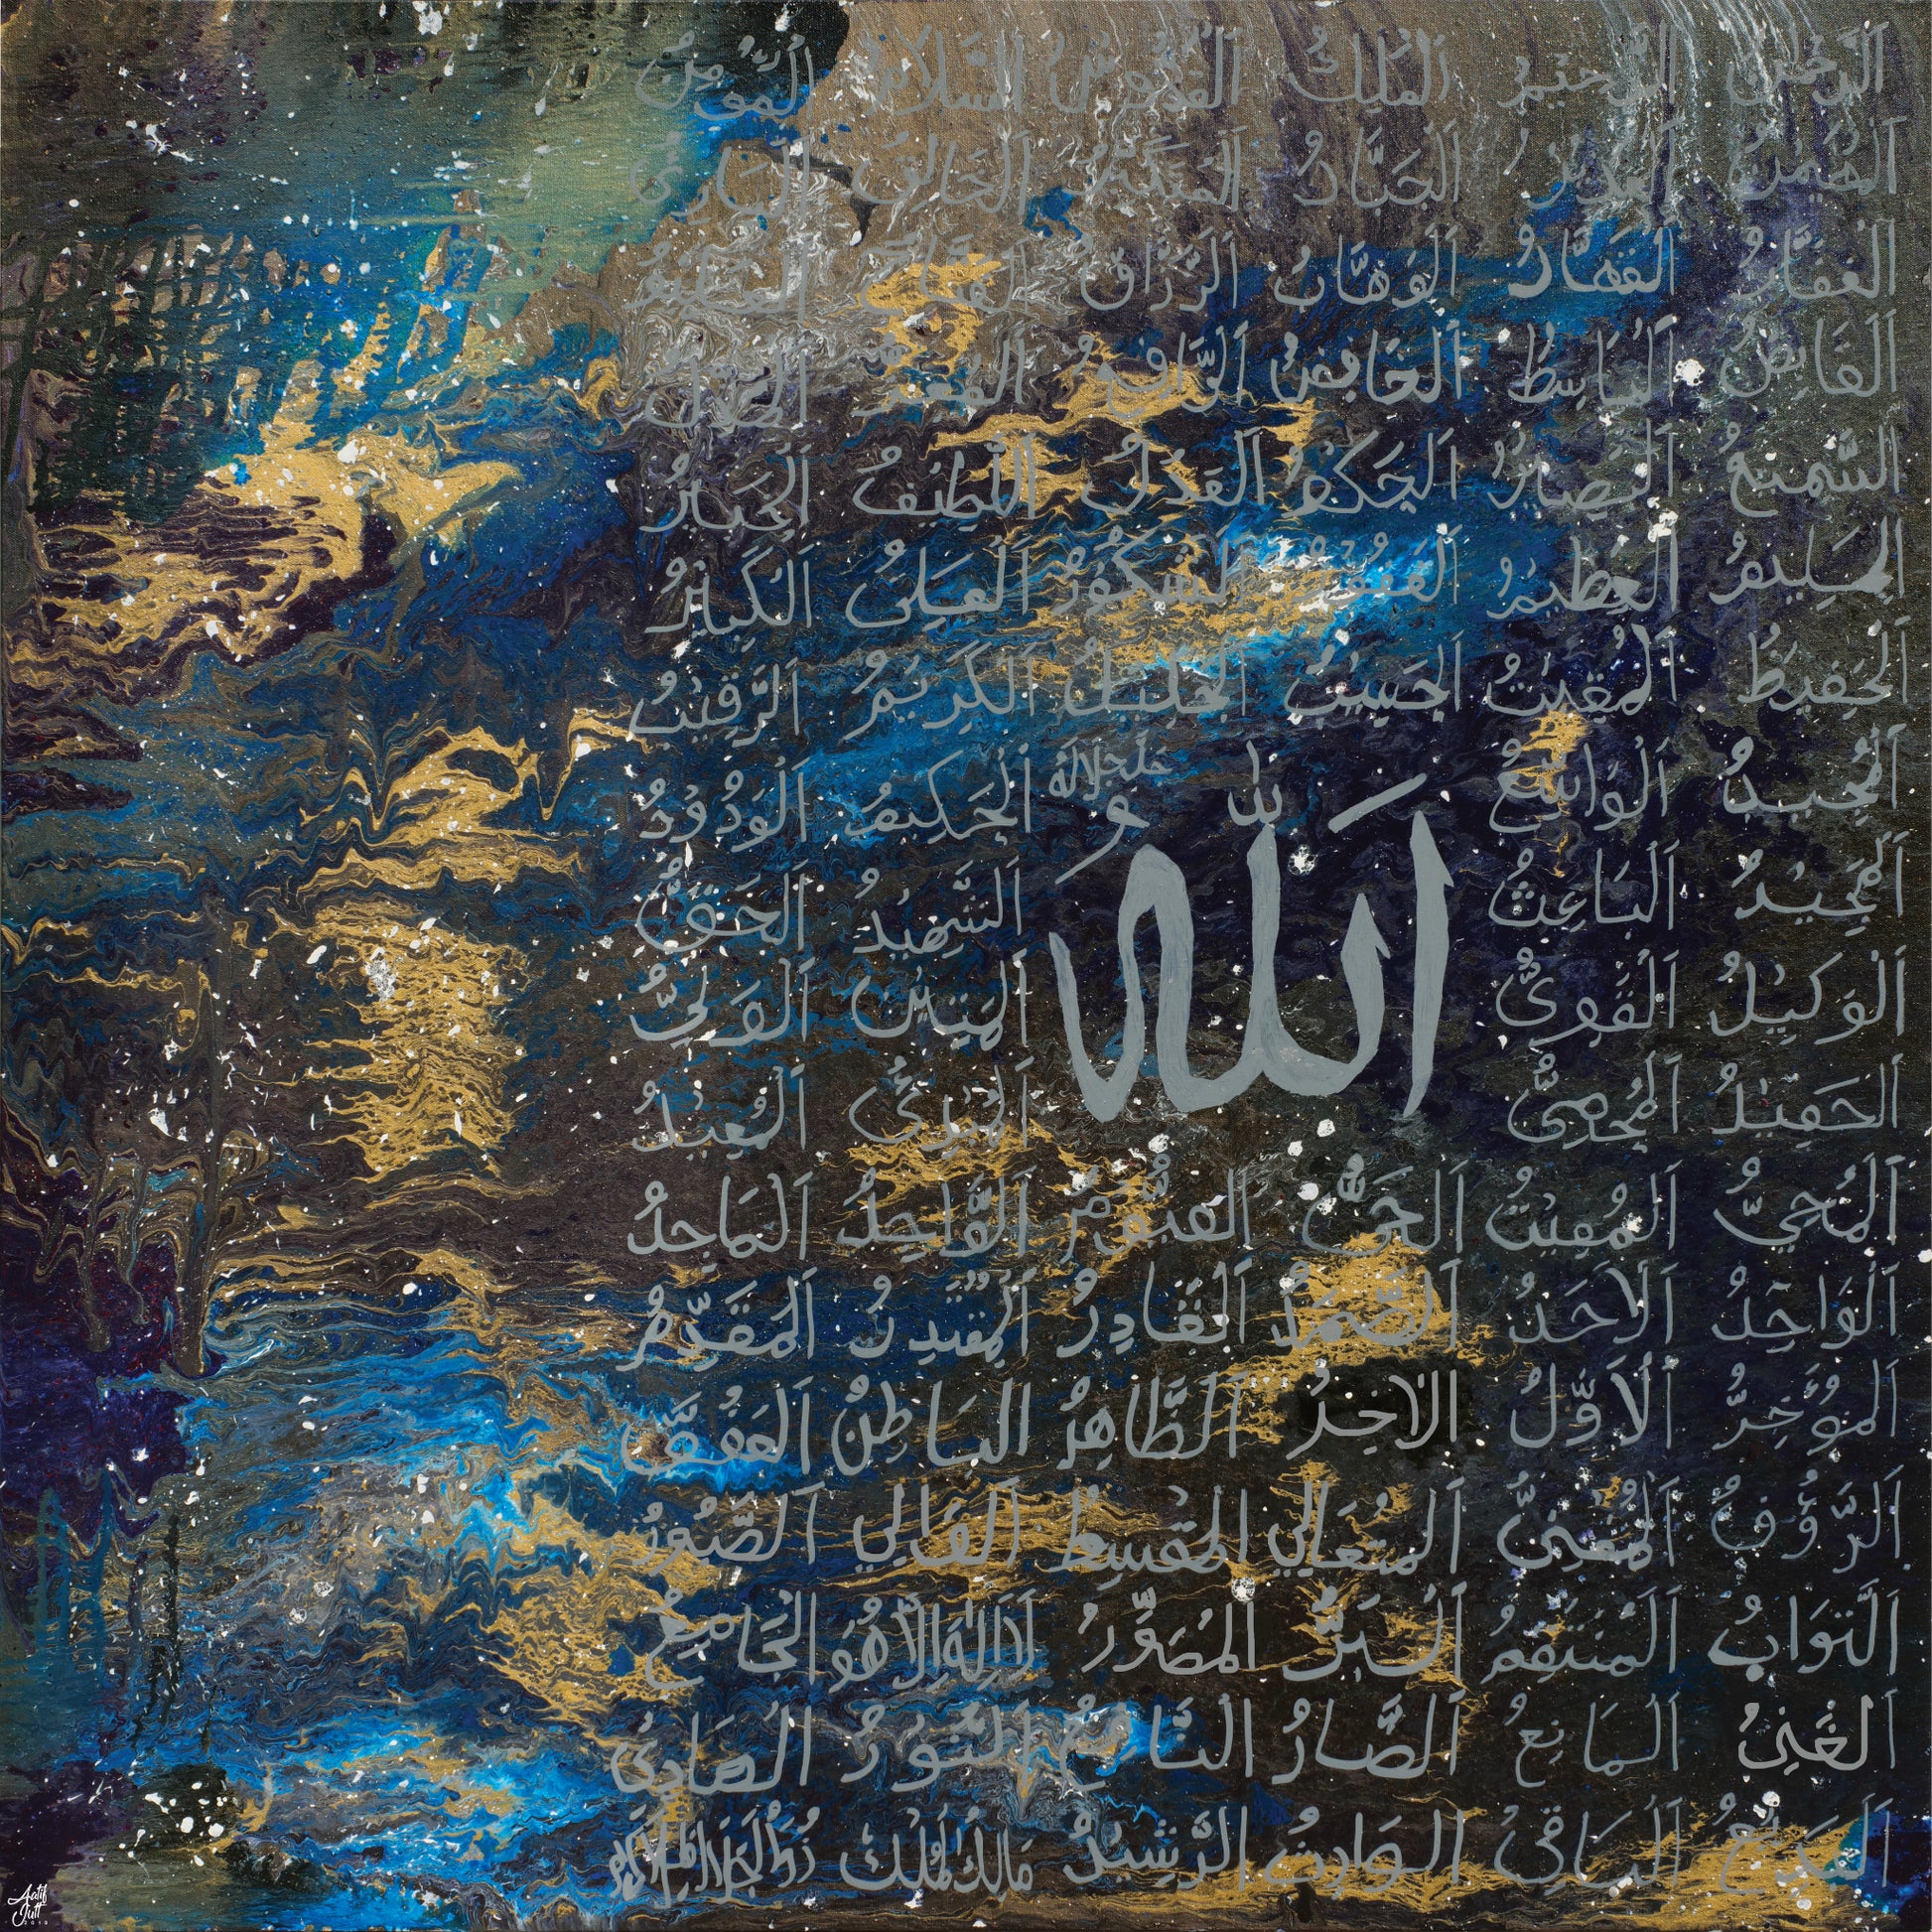 اَلرَّحْمٰنُ اَلرَّحِيْمُ اَلْمَلِكُ اَلْقُدُّوْسُ اَلسَّلَامُ اَلْمُؤْمِنُ
اَلْمُهَيْمِنُ اَلْجَبَّارُ اَلْمُتَكَبِّرُ اَلْخَالِقُ اَلْبَارِئُ
اَلْغَفَّارُ اَلْقَهَّارُ اَلْوَهَّابُ اَلرَّزَّاقُ اَلْفَتَّاحُ اَلْعَلِيْمُ
اَلْقَابِضُ اَلْبَاسِطُ اَلْخَافِضُ اَلرَّافِعُ اَلْمُعِزُّ اَلْمُذِلُّ
اَلسَّمِيْعُ اَلْبَصِيْرُ اَلْحَكَمُ اَلْعَدْلُ اَللَّطِيْفُ اَلْخَبِيْرُ
اَلْحَلِيْمُ اَلْعَظِيْمُ اَلْغَفُوْرُ اَلشَّكُوْرُ اَلْعَلِىُّ اَلْكَبِيْرُ
اَلْحَفِيْظُ اَلْمُقِيْتُ اَلْحَسِيْبُ اَلْجَلِيْلُ اَلْكَرِيْمُ اَلرَّقِيْبُ
اَلْمُجِيْبُ اَلْوَاسِعُ جل جلاله اَلْحَكِيْمُ اَلْوَدُوْدُ
اَللّٰهُ
اَلْمَجِيْدُ اَلْبَاعِثُ اَلشَّهِيْدُ اَلْحَقُّ
اَلْوَكِيْلُ اَلْقَوِىُّ اَلْمَتِيْنُ اَلْوَلِىُّ
اَلْحَمِيْدُ اَلْمُحْصِىُّ اَلْمُبْدِئُ اَلْمُعِيْدُ
اَلْمُحْيِيُّ اَلْمُمِيْتُ اَلْحَىُّ اَلْقَيُّوْمُ اَلْوَاجِدُ اَلْمَاجِدُ
اَلْوَاحِدُ اَلْاَحَدُ اَلصَّمَدُ اَلْقَادِرُ اَلْمُقْتَدِرُ اَلْمُقَدِّمُ
اَلْمُؤَخِّرُ اَلْاَوَّلُ اَلْاٰخِرُ اَلظَّاهِرُ اَلْبَاطِنُ اَلْعَفُوُّ
اَلرَّؤُفُ اَلْمُغْنِىُّ اَلْمُتَعَالِي اَلْمُقْسِطُ اَلْوَالِي اَلصَّبُوْرُ
اَلتَّوَابُ اَلْمُنْتَقِمُ اَلْبَرُّ اَلْمُصَوِّرُ لَا اِلٰهَ اِلَّا هُوَ اَلْجَامِعُ
اَلْغَنِىُّ اَلْمَانِعُ اَلضَّارُّ اَلنَّافِعُ اَلنُّوْرُ اَلْهَادِىُ
اَلْبَدِيْعُ اَلْبَاقِىُ اَلْوَارِثُ اَلرَّشِيْدُ مَالِكُ الْمُلْكِ ذُو الْجَلَالِ وَالْاِكْرَامِ
Aatif
Jutt
2019